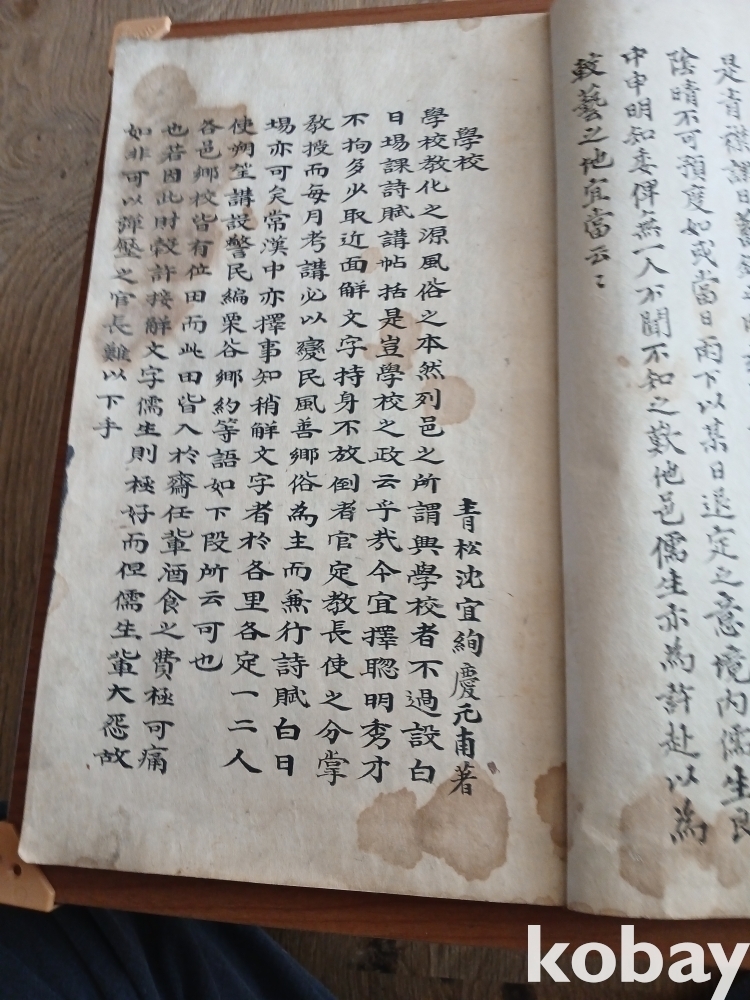 是青襟課日
陰晴不可預度如或當日雨下以某日退定之意境內儒生良
中申明知委俾無一人不聞不知之歎他邑儒生亦為許赴以為
較藝之地宜當云〻
學校
青松沈宜絢慶元甫著
學校教化之源風俗之本然列邑之所謂興學校者不過設白
日場課詩賦講帖括是豈學校之政云乎哉今宜擇聰明秀才
不拘多少取近面觧文字持身不放倒者官定教長使之分掌
教授而每月考講必以變民風善鄉俗為主而兼行詩賦白日
場亦可矣常漢中亦擇事知稍觧文字者於各里各定一二人
使朔望講設警民編栗谷鄉約等語如下段所云可也
各邑鄉校皆有位田而此田皆入於齋任輩酒食之費極可痛
也若因此財穀許接觧文字儒生則極好而但儒生輩大怨故
如非可以彈壓之官長難以下手
kobay